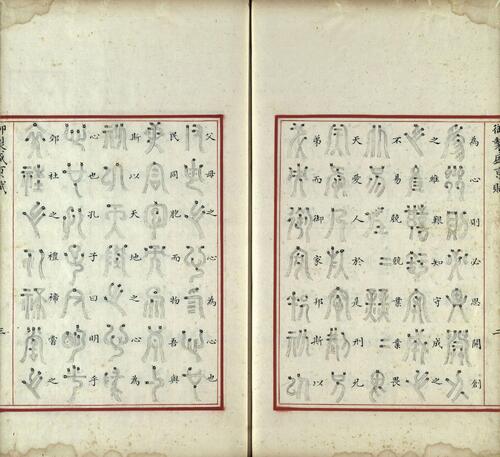 御製盛京賦
為心則必思開創
之維艱知守成之
不易兢兢業業畏
天愛人於是刑兄
弟而御家邦斯以
父母之心為心也
民同胞而物吾與
斯以天地之心為
心也孔子曰明乎
郊社之禮禘嘗之
御製盛京賦
三